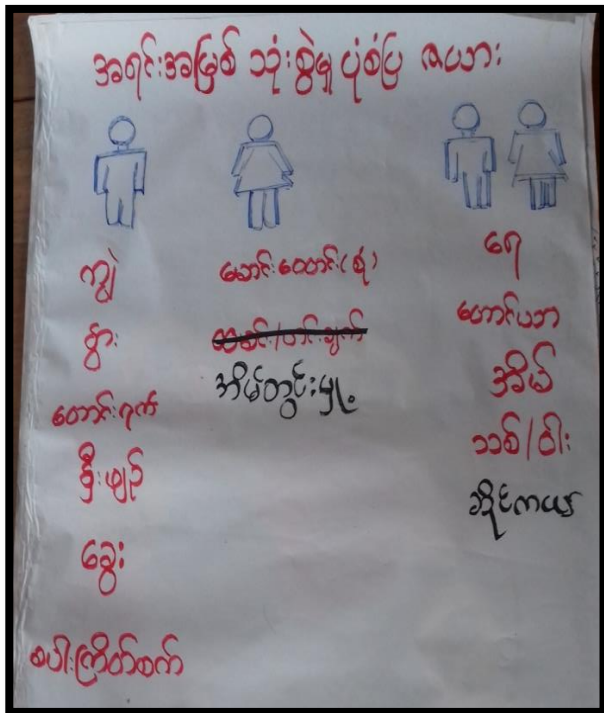 အရင်းအမြစ် သုံးစွဲမှု ပုံစံပြ ဇယား
ကျွဲ
နွား
တောင်းရက်
နှီးဖျာ
ခွေး
စပါးကြိတ်စက်
မောင်းထောင်း(စုံ)
အိမ်တွင်းမှု့
ရေ
ဟောင်ပဘ
အိမ်
သစ်/ဝါး
ဆိုင်ကယ်